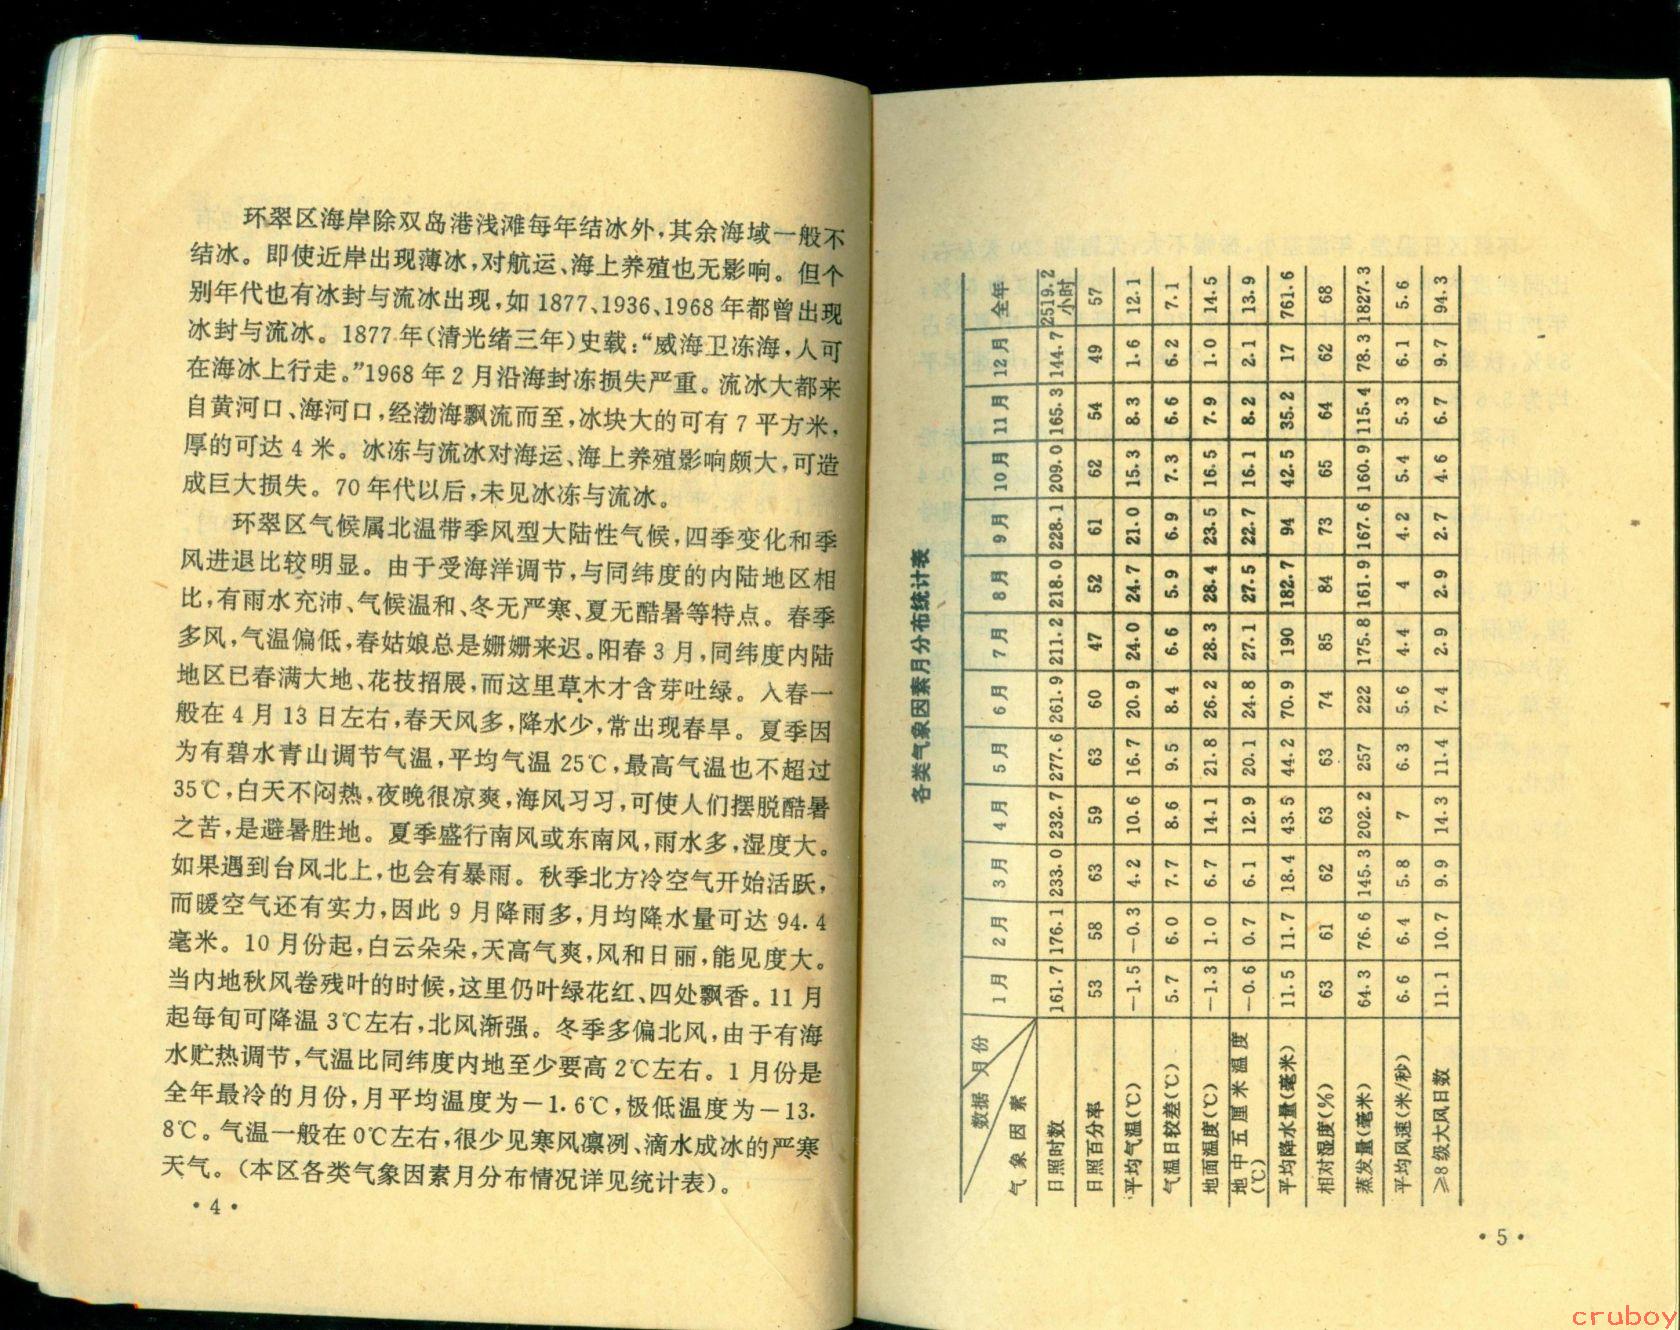 环翠区海岸除双岛港浅滩每年结冰外,其余海域一般不
结冰。即使近岸出现薄冰,对航运、海上养殖也无影响。但个
别年代也有冰封与流冰出现,如1877、1936、1968年都曾出现
冰封与流冰。1877年(清光绪三年)史载:“威海卫冻海,人可
在海冰上行走。”1968年2月沿海封冻损失严重。流冰大都来
自黄河口、海河口,经渤海飘流而至,冰块大的可有7平方米,
厚的可达4米。冰冻与流冰对海运、海上养殖影响颇大,可造
成巨大损失。70年代以后,未见冰冻与流冰。
环翠区气候属北温带季风型大陆性气候,四季变化和季
风进退比较明显。由于受海洋调节,与同纬度的内陆地区相
比,有雨水充沛、气候温和、冬无严寒、夏无酷暑等特点。春季
多风,气温偏低,春姑娘总是姗姗来迟。阳春3月,同纬度内陆
地区已春满大地、花技招展,而这里草木才含芽吐绿。入春一
般在4月13日左右,春天风多,降水少,常出现春旱。夏季因
为有碧水青山调节气温,平均气温25℃,最高气温也不超过
35℃,白天不闷热,夜晚很凉爽,海风习习,可使人们摆脱酷暑
之苦,是避暑胜地。夏季盛行南风或东南风,雨水多,湿度大。
如果遇到台风北上,也会有暴雨。秋季北方冷空气开始活跃,
而暖空气还有实力,因此9月降雨多,月均降水量可达94.4
毫米。10月份起,白云朵朵,天高气爽,风和日丽,能见度大。
当内地秋风卷残叶的时候,这里仍叶绿花红、四处飘香。11月
起每旬可降温3℃左右,北风渐强。冬季多偏北风,由于有海
水贮热调节,气温比同纬度内地至少要高2℃左右。1月份是
全年最冷的月份,月平均温度为-1.6℃,极低温度为-13.
8℃。气温一般在0℃左右,很少见寒风凛冽、滴水成冰的严寒
天气。(本区各类气象因素月分布情况详见统计表)。
·4·
各类气象因素月分布统计表
数据 月份 气象因素 1月 2月 3月 4月 5月 6月 7月 8月 9月 10月 11月 12月 全年
日照时数 161.7 176.1 233.0 232.7 277.6 261.9 211.2 218.0 228.1 209.0 165.3 144.7 2519.2小时
日照百分率 53 58 63 59 63 60 47 52 61 62 54 49 57
平均气温(℃) -1.5 -0.3 4.2 10.6 16.7 20.9 24.0 24.7 21.0 15.3 8.3 1.6 12.1
气温日较差(℃) 5.7 6.0 7.7 8.6 9.5 8.4 6.6 5.9 6.9 7.3 6.6 6.2 7.1
地面温度(℃) -1.3 1.0 6.7 14.1 21.8 26.2 28.3 28.4 23.5 16.5 7.9 1.0 14.5
地中五厘米温度(℃) -0.6 0.7 6.1 12.9 20.1 24.8 27.1 27.5 22.7 16.1 8.2 2.1 13.9
平均降水量(毫米) 11.5 11.7 18.4 43.5 44.2 70.9 190 182.7 94 42.5 35.2 17 761.6
相对湿度(%) 63 61 62 63 63 74 85 84 73 65 64 62 68
蒸发量(毫米) 64.3 76.6 145.3 202.2 257 222 175.8 161.9 167.6 160.9 115.4 78.3 1827.3
平均风速(米/秒) 6.6 6.4 5.8 7 6.3 5.6 4.4 4 4.2 5.4 5.3 6.1 5.6
≥8级大风日数 11.1 10.7 9.9 14.3 11.4 7.4 2.9 2.9 2.7 4.6 6.7 9.7 94.3
·5·
cruboy